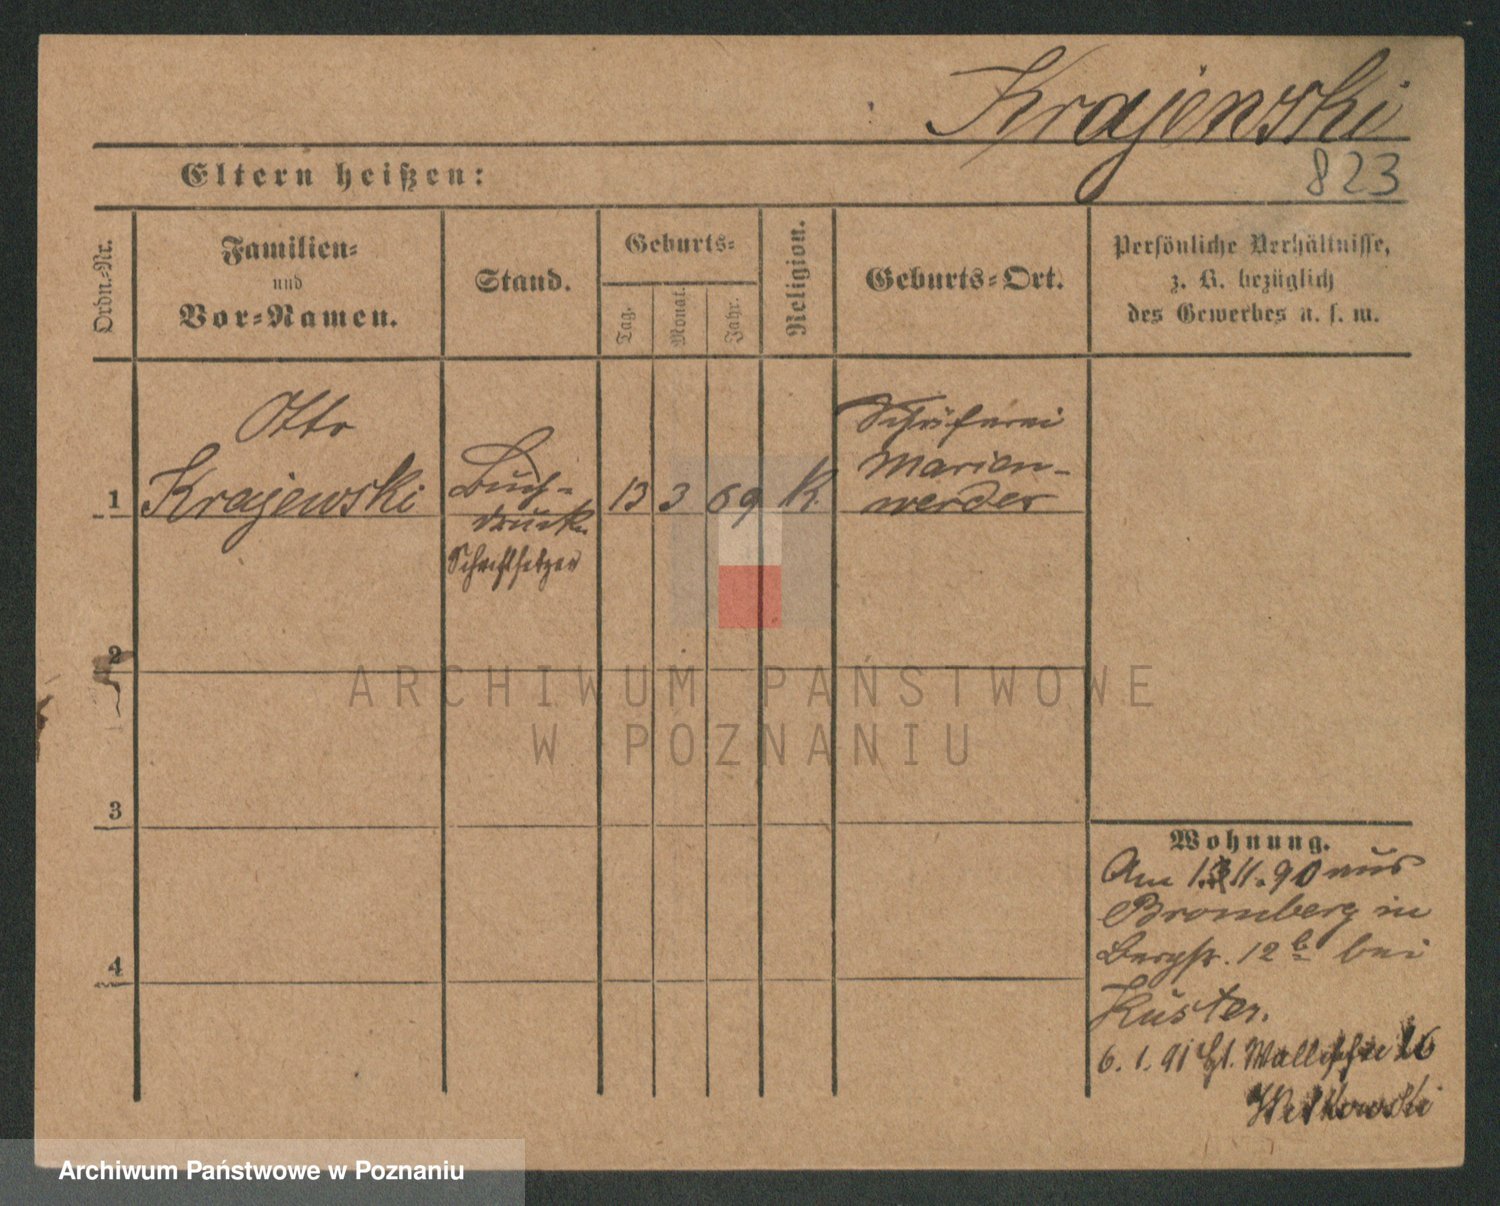 Krajewski
823
Eltern heißen:
Ordn.-Nr.
Familien-
und
Vor-Namen.
Stand.
Geburts-
Tag.
Monat.
Jahr.
Religion.
Geburts-Ort.
Persönliche Verhältnisse,
z. B. bezüglich
des Gewerbes u. s. w.
1
Otto
Krajewski
Buch-
druck.
Schriftsetzer
13
3
69
K.
Schäferei
Marien-
werder
2
3
4
Wohnung.
Am 11.90 aus
Bromberg in
Bergstr. 12 b bei
Küster.
6. 1. 91 Wallischei
Witkowski
ARCHIWUM PAŃSTWOWE
W POZNANIU
Archiwum Państwowe w Poznaniu